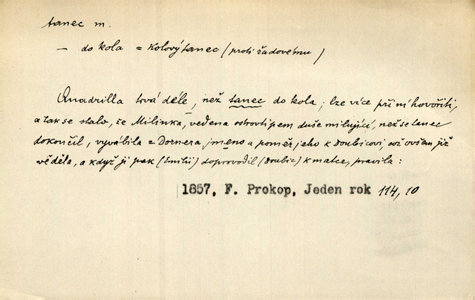 tanec m.
— do kola = kolový tanec (proti řadovému)
Quadrilla trvá déle, než tanec do kola; lze více při ní hovořiti,
a tak se stalo, že Milinka, vedena ostrovtipem duše milující, než se tanec
dokončil, vyvábila z Dornera, jmeno a poměr jeho k Doubicovi, což ovšem již
věděla, a když ji pak (Emilii) doprovodil (Doubic) k matce, pravila:
1857, F. Prokop, Jeden rok 114, 10